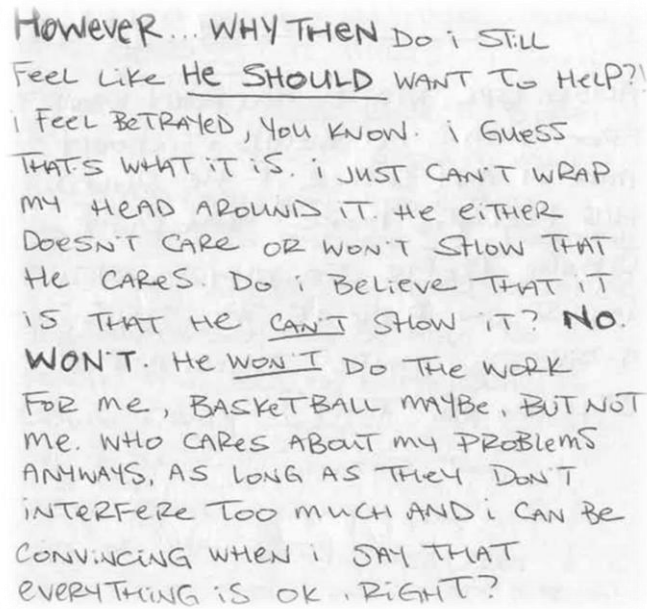 However... WHY THEN Do i STiLL
FEEL LiKE HE SHOULD WANT To HeLP?!
i FEEL BeTRAYeD, YOU KNOW. i GUESS
THAT'S WHAT iT iS. i JUST CAN'T WRAP
my HEAD AROUND iT. He eiTHER
DOESN'T CARE OR WON'T SHOW THAT
He CARES. Do i BeLieve THAT iT
iS THAT He CAN'T SHOW iT? NO.
WON'T. He WON'T DO THE WORK
FOR me, BASKeTBALL MAYBe, BUT NOT
me. WHO CARes ABOUT my PROBLemS
ANYWAYS, AS LONG AS THey DON'T
iNTeRFeRe TOO mUCH AND i CAN Be
CONViNCiNG WHEN i SAY THAT
eVeRYTHiNG iS OK. RiGHT?